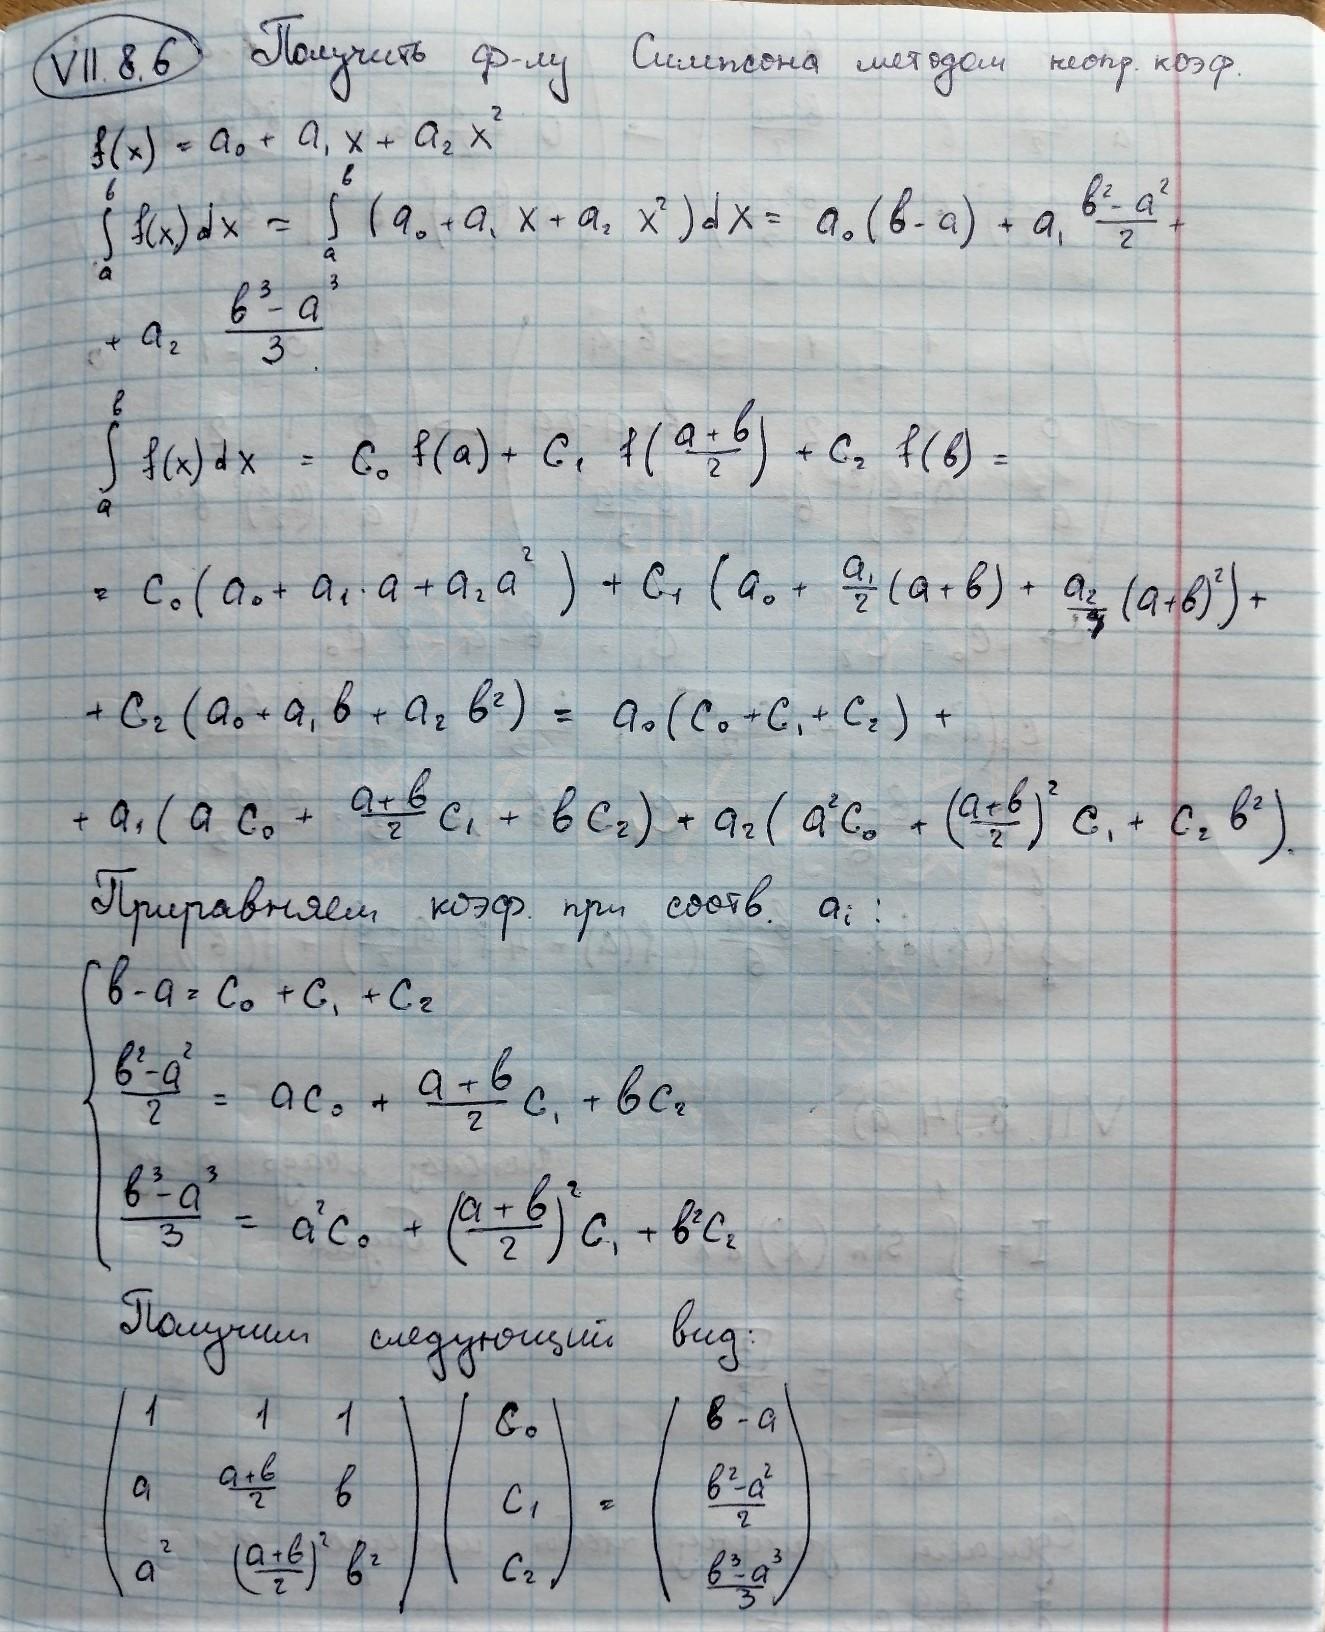 VII.8.6 Получить ф-лу Симпсона методом неопр. коэф.
f(x) = a₀ + a₁ x + a₂ x²
∫ₐᵇ f(x)dx = ∫ₐᵇ (a₀ + a₁ x + a₂ x²)dx = a₀(b-a) + a₁ (b²-a²)/2 +
+ a₂ (b³-a³)/3.
∫ₐᵇ f(x)dx = C₀ f(a) + C₁ f((a+b)/2) + C₂ f(b) =
= C₀(a₀ + a₁·a + a₂a²) + C₁ (a₀ + a₁/2 (a+b) + a₂/4 (a+b)²) +
+ C₂(a₀ + a₁b + a₂b²) = a₀(C₀ + C₁ + C₂) +
+ a₁(a C₀ + (a+b)/2 C₁ + bC₂) + a₂(a²C₀ + ((a+b)/2)² C₁ + C₂ b²).
Приравняем коэф. при соотв. aᵢ:
b-a = C₀ + C₁ + C₂
(b²-a²)/2 = aC₀ + (a+b)/2 C₁ + bC₂
(b³-a³)/3 = a²C₀ + ((a+b)/2)² C₁ + b²C₂
Получим следующий вид:
(1 1 1) (C₀) (b-a)
(a (a+b)/2 b) (C₁) = ((b²-a²)/2)
(a² ((a+b)/2)² b²) (C₂) ((b³-a³)/3)